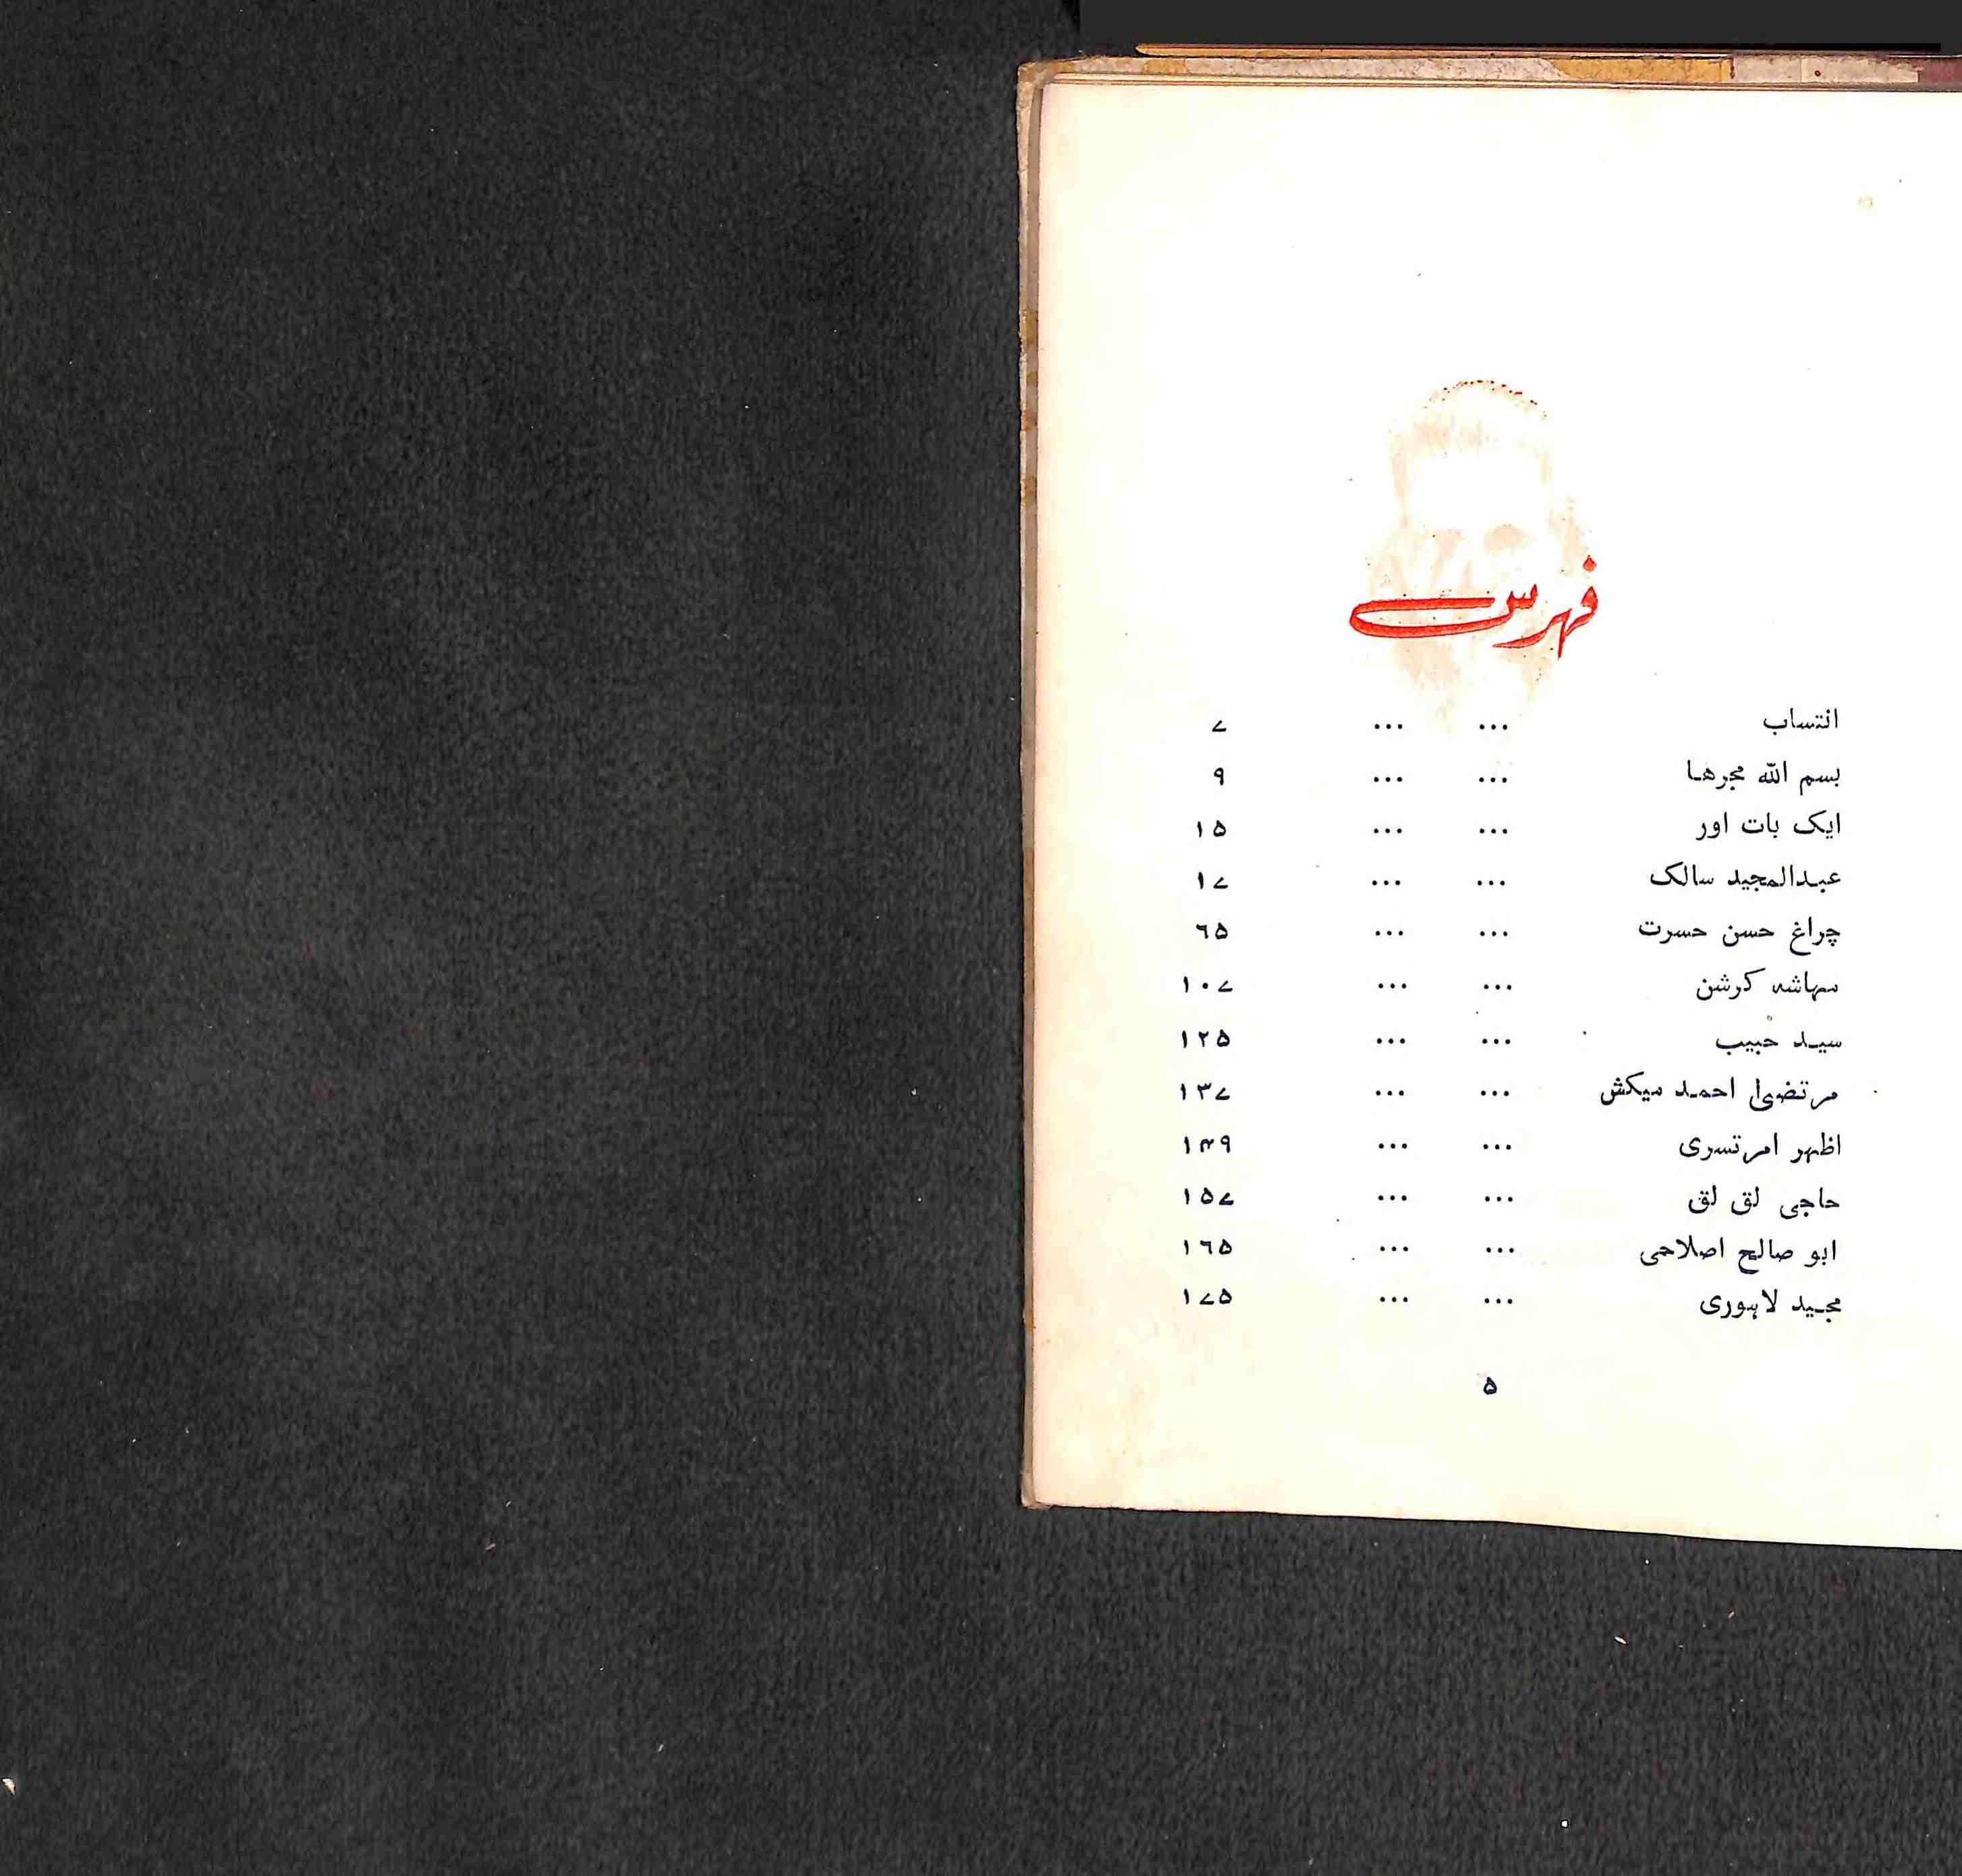 فہرست
انتساب ... ... ۷
بسم اللہ مجرھا ... ... ۹
ایک بات اور ... ... ۱۵
عبدالمجید سالک ... ... ۱۷
چراغ حسن حسرت ... ... ۶۵
مہاشہ کرشن ... ... ۱۰۷
سید حبیب ... ... ۱۲۵
مرتضیٰ احمد میکش ... ... ۱۳۷
اظہر امرتسری ... ... ۱۴۹
حاجی لق لق ... ... ۱۵۷
ابو صالح اصلاحی ... ... ۱۶۵
مجید لاہوری ... ... ۱۷۵
۵